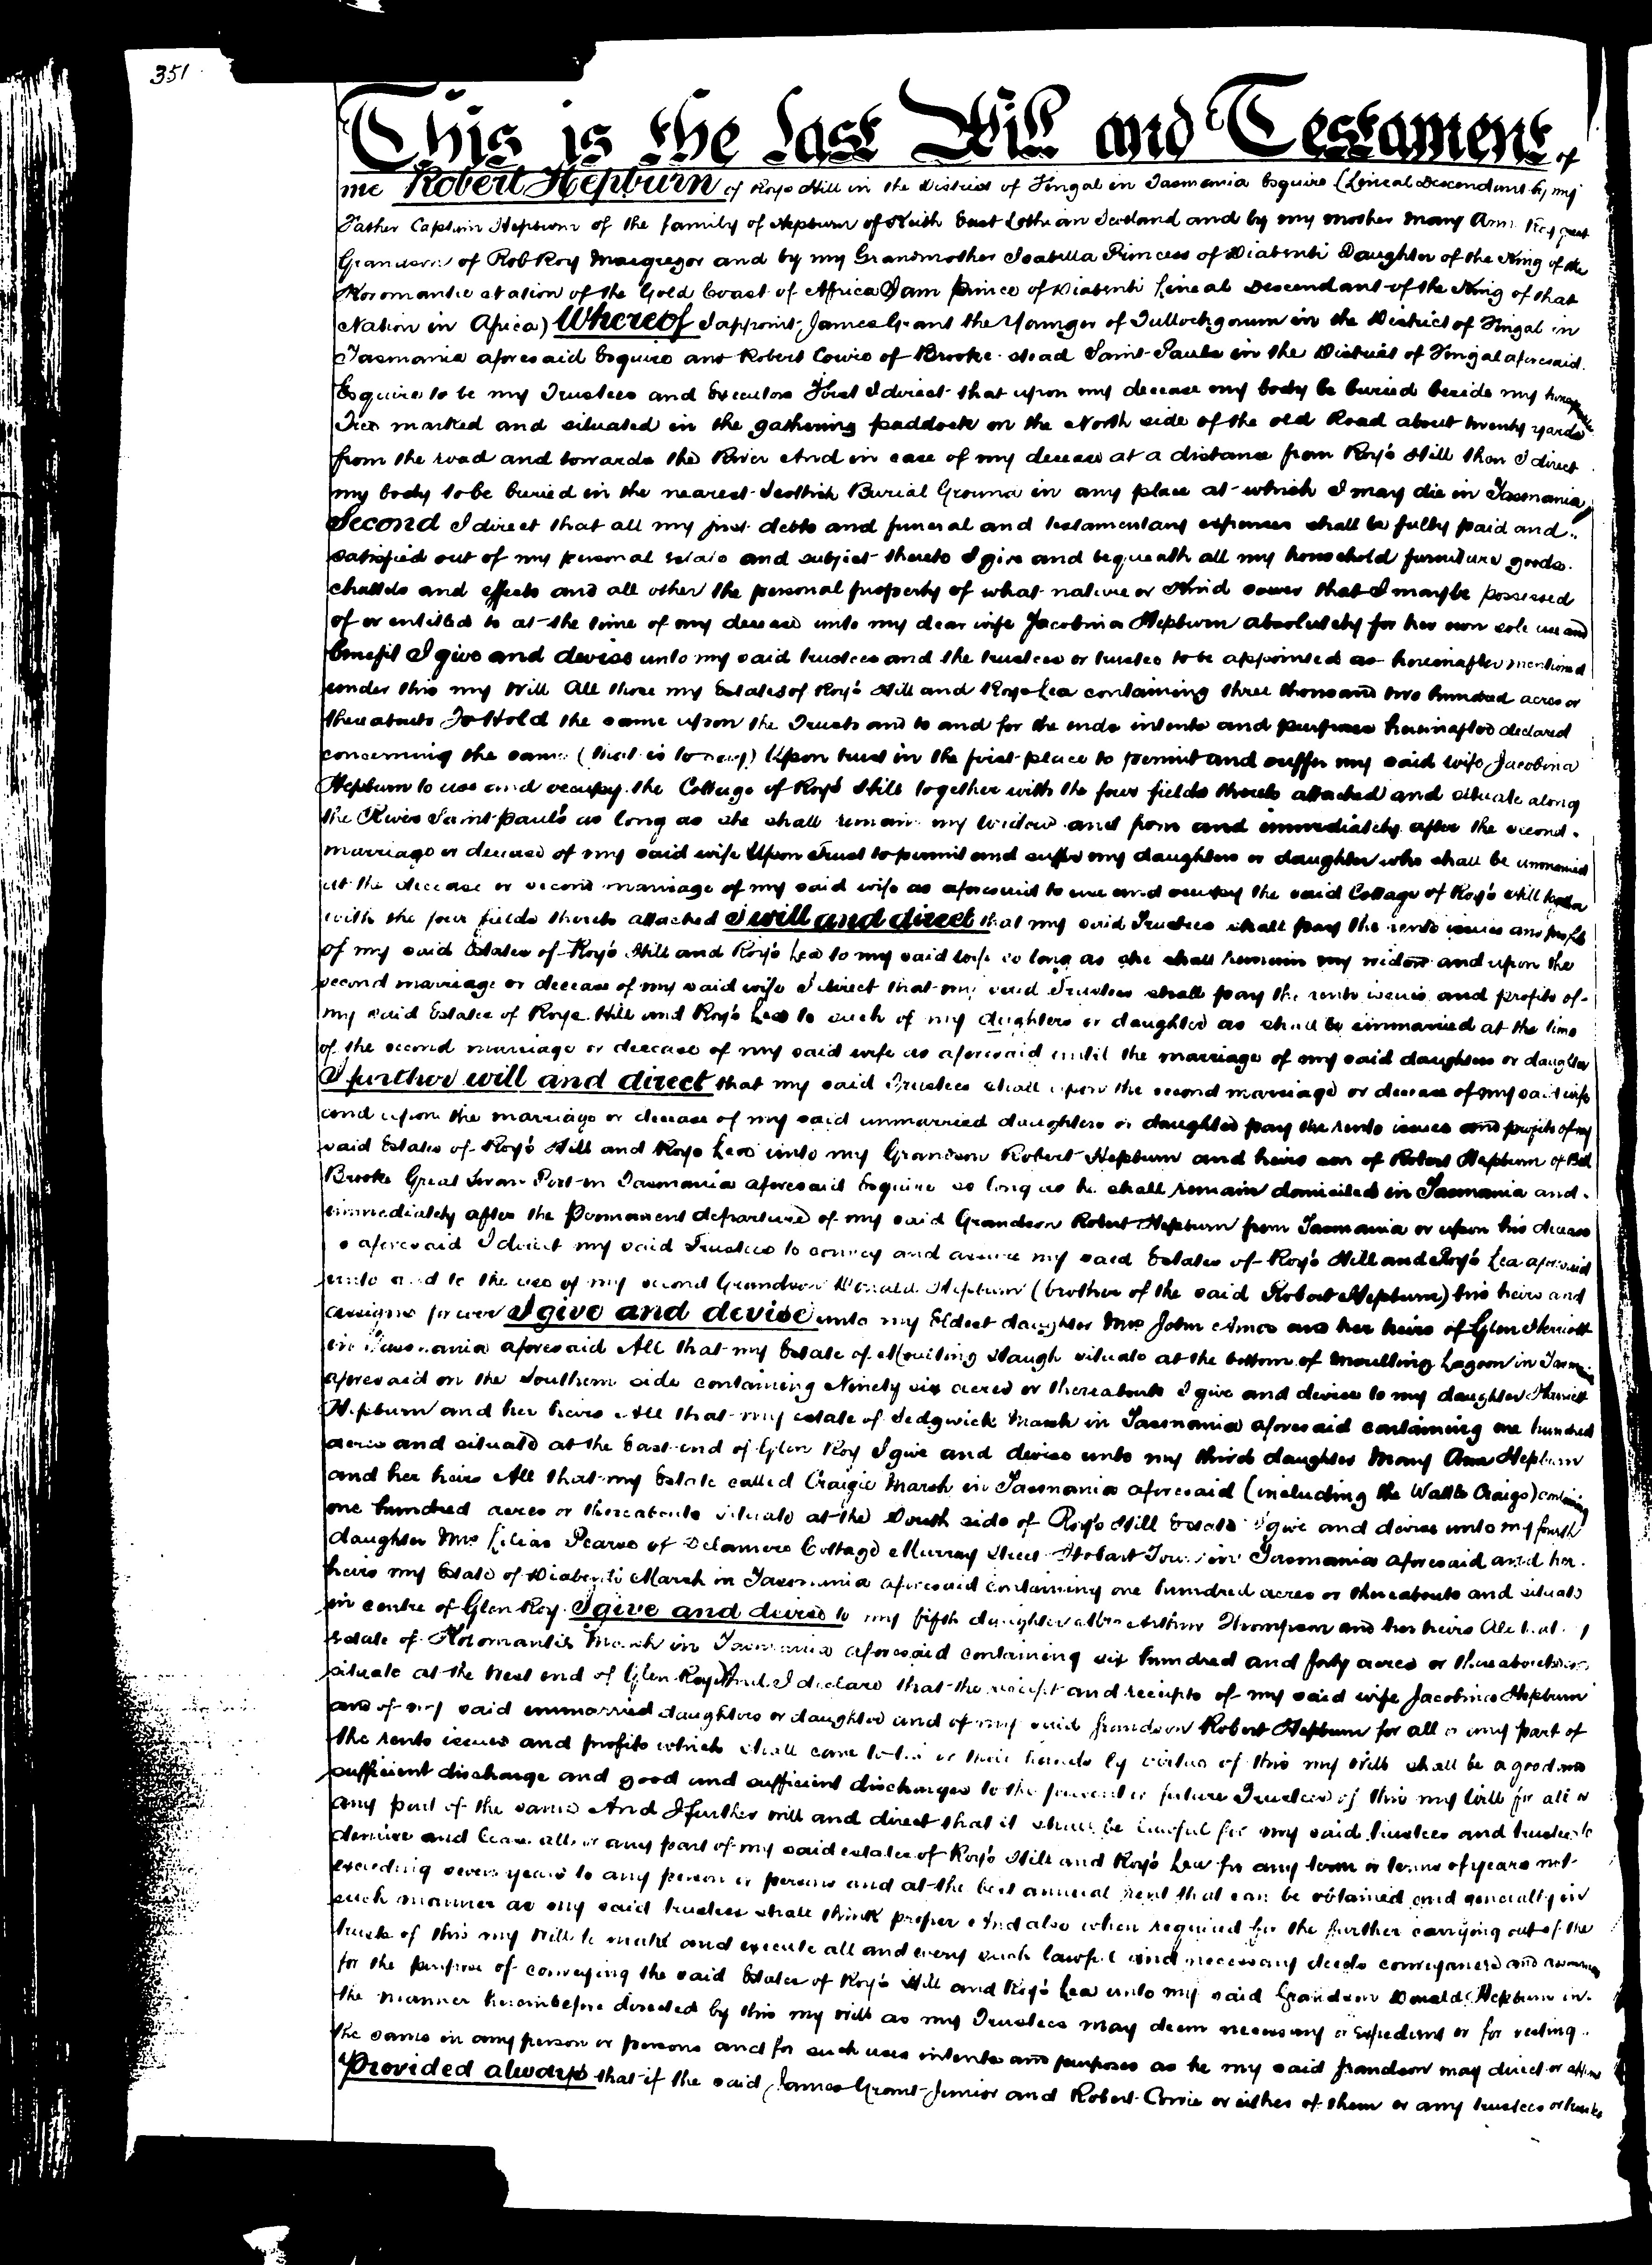 351
This is the last Will and Testament of
me Robert Hepburn of Roy's Hill in the District of Fingal in Tasmania Esquire (Lineal Descendant by my
Father Captain Hepburn of the family of Hepburn of Keith East Lothian Scotland and by my mother Mary Ann Roy great
Grandson of Rob Roy Macgregor and by my Grandmother Isabella Princess of Diabenti Daughter of the King of the
Koromantie Nation of the Gold Coast of Africa I am Prince of Diabenti Lineal Descendant of the King of that
Nation in Africa) Whereof I appoint James Grant the Younger of Tullochgorum in the District of Fingal in
Tasmania aforesaid Esquire and Robert Cowie of Brooke stead Saint Pauls in the District of Fingal aforesaid
Esquire to be my Trustees and Executors First I direct that upon my decease my body be buried beside my
Tree marked and situated in the gathering paddock on the North side of the old Road about twenty yards
from the road and towards the River And in case of my decease at a distance from Roy's Hill then I direct
my body to be buried in the nearest Scottish Burial Ground in any place at which I may die in Tasmania
Second I direct that all my just debts and funeral and testamentary expenses shall be fully paid and
satisfied out of my personal estate and subject thereto I give and bequeath all my household furniture goods
chattels and effects and all other the personal property of what nature or Kind soever that I may be possessed
of or entitled to at the time of my decease unto my dear wife Jacobina Hepburn absolutely for her own sole use and
benefit I give and devise unto my said trustees and the trustees or trustee to be appointed as hereinafter mentioned
under this my Will All those my Estates of Roy's Hill and Roys Lea containing three thousand two hundred acres or
thereabouts To Hold the same upon the Trusts and to and for the ends intents and purposes hereinafter declared
concerning the same (that is to say) Upon trust in the first place to permit and suffer my said wife Jacobina
Hepburn to use and occupy the Cottage of Roy's Hill together with the four fields thereto attached and situate along
the River Saint Paul's as long as she shall remain my widow and from and immediately after the second
marriage or decease of my said wife Upon Trust to permit and suffer my daughters or daughter who shall be unmarried
at the decease or second marriage of my said wife as aforesaid to use and occupy the said Cottage of Roy's Hill together
with the four fields thereto attached I will and direct that my said Trustees shall pay the rents issues and profits
of my said Estates of Roy's Hill and Roy's Lea to my said wife so long as she shall remain my widow and upon the
second marriage or decease of my said wife I direct that my said Trustees shall pay the rents issues and profits of
my said Estates of Roys Hill and Roy's Lea to such of my daughters or daughter as shall be unmarried at the time
of the second marriage or decease of my said wife as aforesaid until the marriage of my said daughters or daughter
I further will and direct that my said Trustees shall upon the second marriage or decease of my said wife
and upon the marriage or decease of my said unmarried daughters or daughter pay the rents issues and profits of my
said Estates of Roy's Hill and Roys Lea unto my Grandson Robert Hepburn and heirs son of Robert Hepburn of Bell
Brooke Great Swan Port in Tasmania aforesaid Esquire so long as he shall remain domiciled in Tasmania and
immediately after the Permanent departure of my said Grandson Robert Hepburn from Tasmania or upon his decease
as aforesaid I direct my said Trustees to convey and assure my said Estates of Roy's Hill and Roy's Lea aforesaid
unto and to the use of my second Grandson Donald Hepburn (brother of the said Robert Hepburn) his heirs and
assigns for ever I give and devise unto my Eldest daughter Mrs John Amos and her heirs of Glen Herriott
in Tasmania aforesaid All that my Estate of Moulting Haugh situate at the bottom of Moulting Lagoon in
aforesaid on the Southern side containing Ninety six acres or thereabouts I give and devise to my daughter Harriett
Hepburn and her heirs All that my estate of Sedgwick Marsh in Tasmania aforesaid containing one hundred
acres and situate at the East end of Glen Roy I give and devise unto my third daughter Mary Ann Hepburn
and her heirs All that my Estate called Craigie Marsh in Tasmania aforesaid (including the Watts Craigs) containing
one hundred acres or thereabouts situate at the South side of Roy's Hill Estate I give and devise unto my fourth
daughter Mrs Lilias Pearse of Delamere Cottage Murray Street Hobart Town in Tasmania aforesaid and her
heirs my Estate of Diabenti Marsh in Tasmania aforesaid containing one hundred acres or thereabouts and situate
in centre of Glen Roy. I give and devise to my fifth daughter Mrs Arthur Thompson and her heirs All that
Estate of Koromantie Marsh in Tasmania aforesaid containing six hundred and forty acres or thereabouts
situate at the West end of Glen Roy And I declare that the receipt and receipts of my said wife Jacobina Hepburn
and of my said unmarried daughters or daughter and of my said grandson Robert Hepburn for all or any part of
the rents issues and profits which shall come to his or their hands by virtue of this my Will shall be a good and
sufficient discharge and good and sufficient discharges to the present or future Trustees of this my Will for all or
any part of the same And I further will and direct that it shall be lawful for my said trustees and trustee to
demise and lease all or any part of my said estates of Roy's Hill and Roy's Lea for any term or terms of years not
exceeding seven years to any person or persons and at the best annual rent that can be obtained and generally in
such manner as my said trustees shall think proper And also when required for the further carrying out of the
trusts of this my Will to make and execute all and every such lawful and necessary deeds conveyances and assurances
for the purpose of conveying the said Estates of Roy's Hill and Roy's Lea unto my said Grandson Donald Hepburn in
the manner hereinbefore directed by this my Will as my Trustees may deem necessary or expedient or for vesting
the same in any person or persons and for such uses intents and purposes as he my said grandson may direct or
Provided always that if the said James Grant Junior and Robert Cowie or either of them or any trustees or trustee